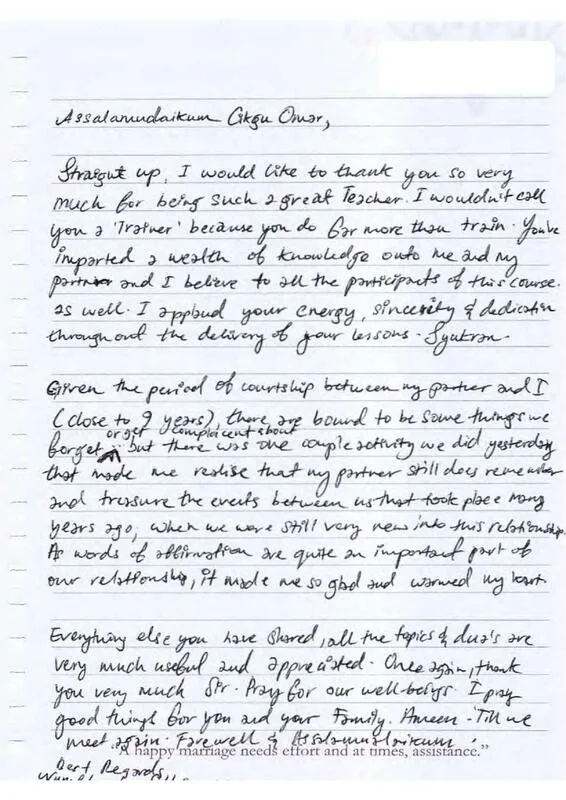 Assalamualaikum Cikgu Omar,
Straight up, I would like to thank you so very
much for being such a great Teacher. I wouldn't call
you a 'Trainer' because you do far more than train. You've
imparted a wealth of knowledge onto me and my
partner and I believe to all the participants of this course.
as well. I applaud your energy, sincerity & dedication
throughout the delivery of your lessons. Syukran.
Given the period of courtship between my partner and I
(close to 9 years), there are bound to be some things we
or get complacent about
forget but there was one couple activity we did yesterday
that made me realise that my partner still does remember
and treasure the events between us that took place many
years ago, when we were still very new into this relationship.
As words of affirmation are quite an important part of
our relationship, it made me so glad and warmed my heart.
Everything else you have shared, all the topics & dua's are
very much useful and appreciated. Once again, thank
you very much Sir. Pray for our well-beings. I pray
good things for you and your Family. Ameen. Till we
meet again. Farewell & Assalamualaikum.
"A happy marriage needs effort and at times, assistance."
Best Regards,